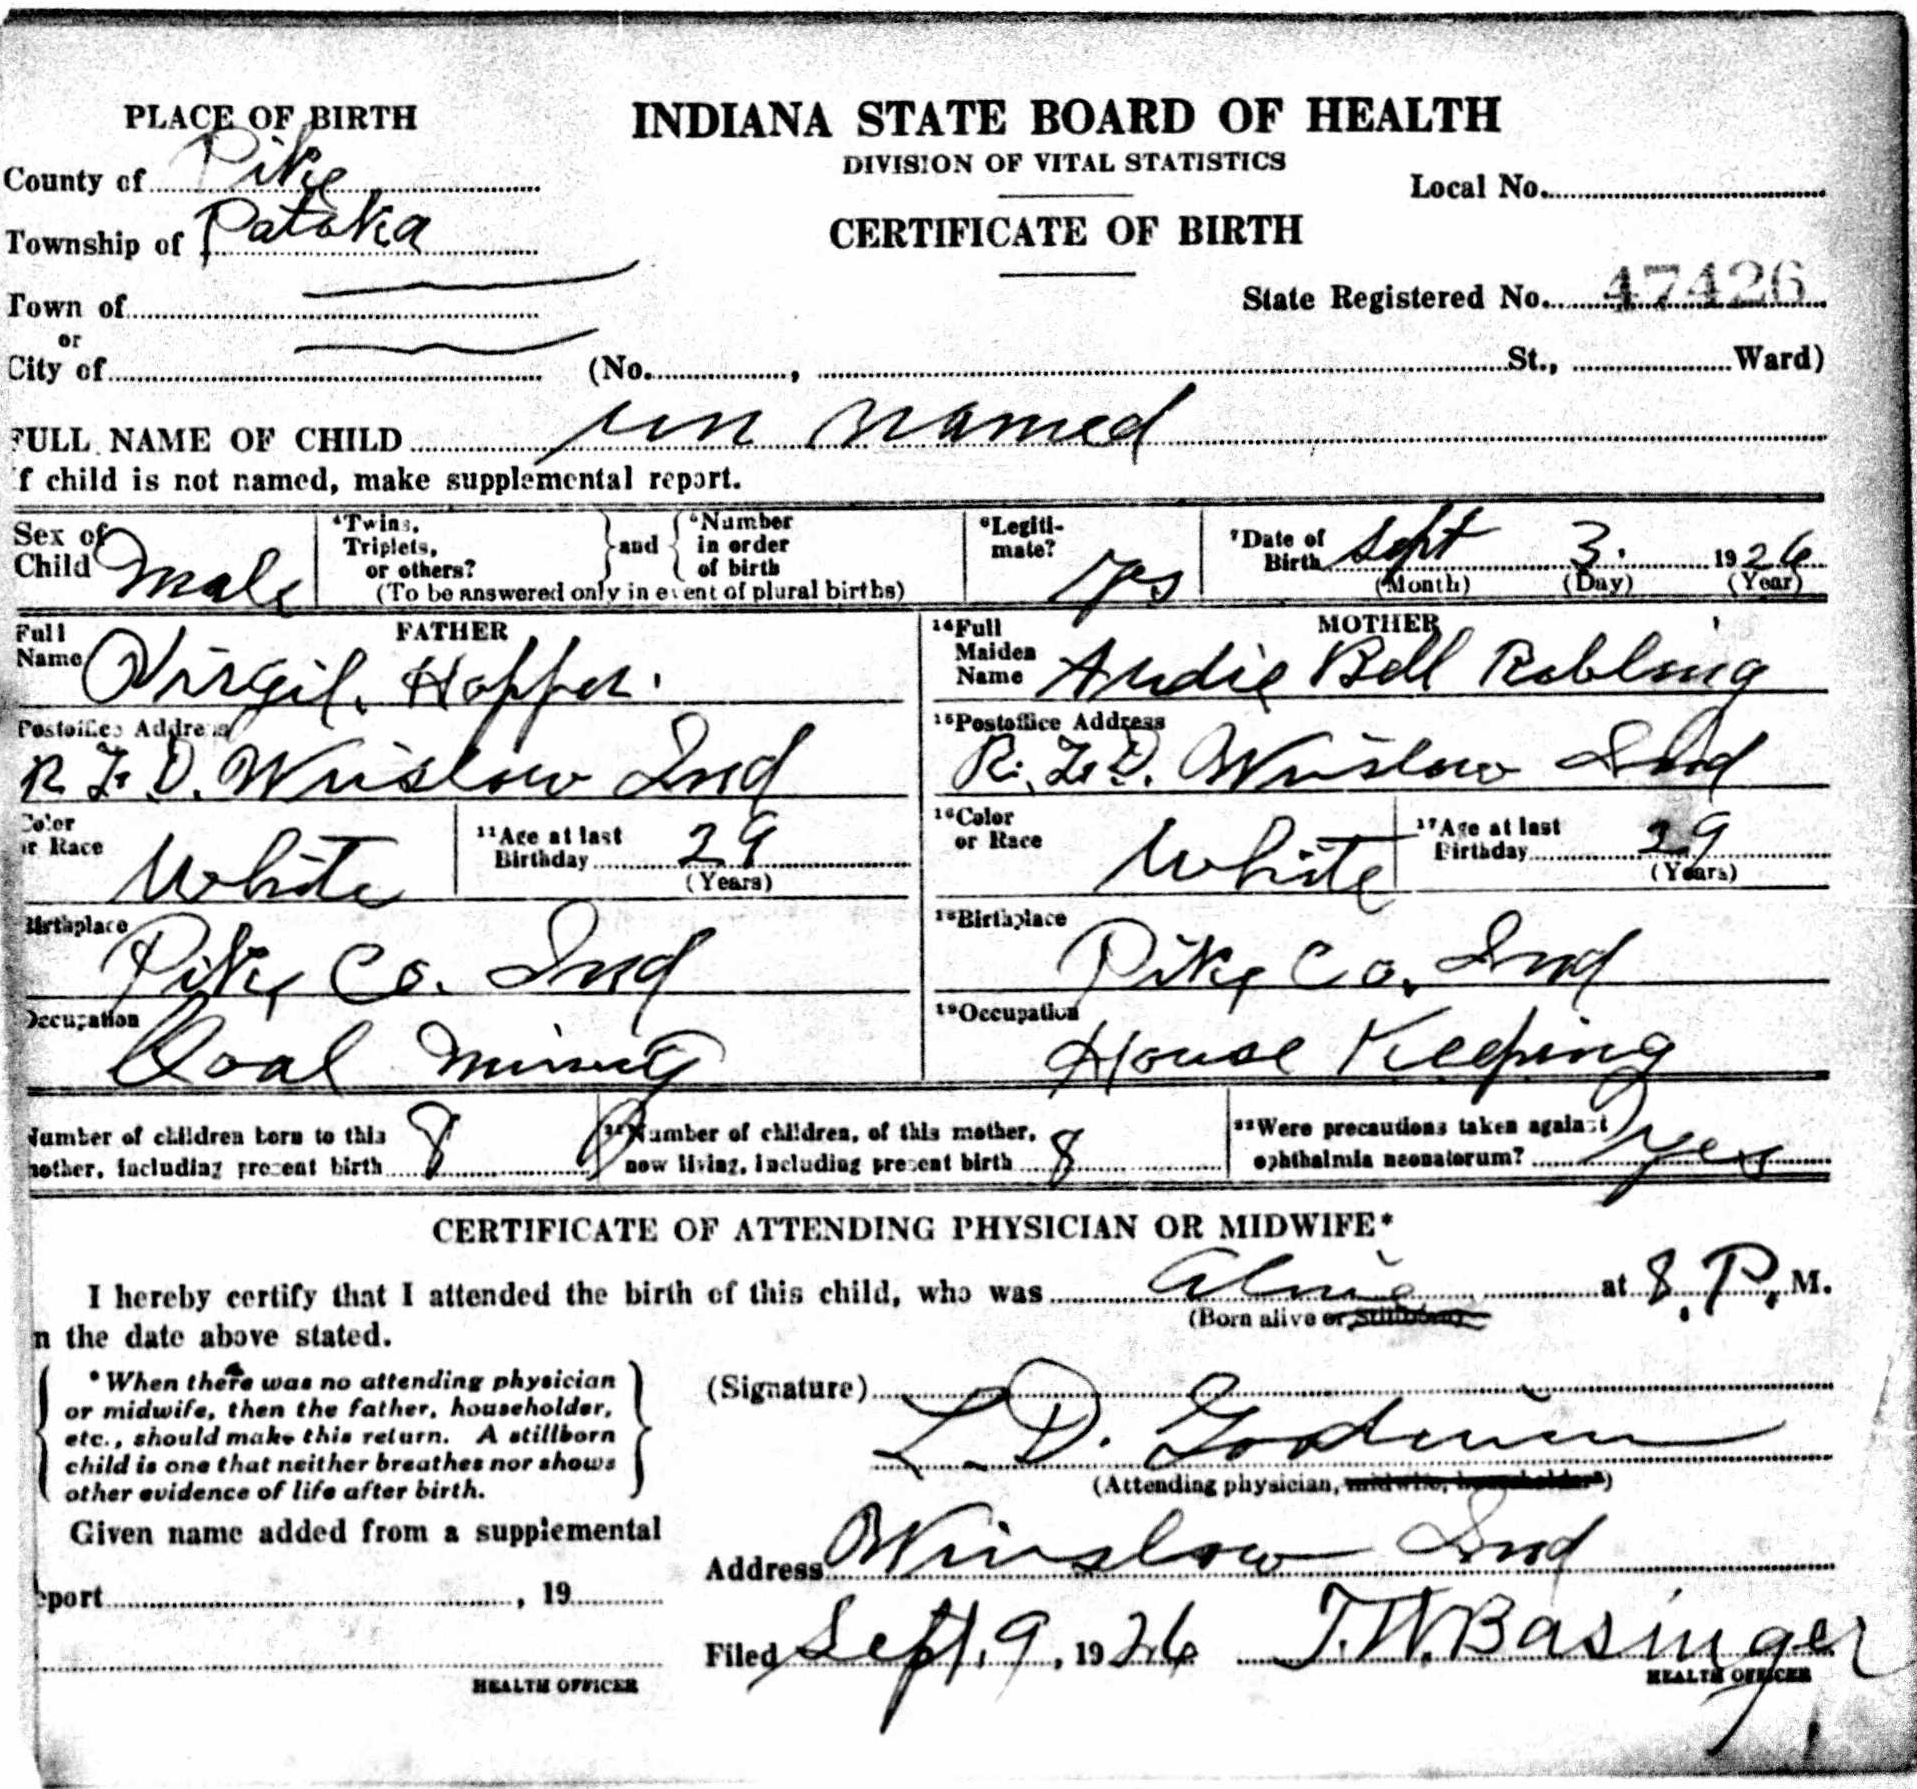 PLACE OF BIRTH
INDIANA STATE BOARD OF HEALTH
DIVISION OF VITAL STATISTICS
County of Pike
Local No.
Township of Patoka
CERTIFICATE OF BIRTH
Town of
State Registered No. 47426
or
City of (No. , St., Ward)
FULL NAME OF CHILD un named
If child is not named, make supplemental report.
Sex of Child Male
4Twins, Triplets, or others? and Number in order of birth
(To be answered only in event of plural births)
6Legitimate? yes
7Date of Birth Sept 3. 1926
(Month) (Day) (Year)
FATHER
Full Name Virgil Hopper.
MOTHER
14Full Maiden Name Audie Bell Robling
Postoffice Address
R. F. D. Winslow Ind
15Postoffice Address
R. F. D. Winslow Ind
Color or Race White
11Age at last Birthday 29
(Years)
16Color or Race White
17Age at last Birthday 29
(Years)
Birthplace
Pike Co. Ind
18Birthplace
Pike Co. Ind
Occupation
Coal Mining
19Occupation
House Keeping
Number of children born to this mother, including present birth 8
Number of children, of this mother, now living, including present birth 8
22Were precautions taken against ophthalmia neonatorum? Yes
CERTIFICATE OF ATTENDING PHYSICIAN OR MIDWIFE*
I hereby certify that I attended the birth of this child, who was alive at 8. P. M.
(Born alive or stillborn)
n the date above stated.
*When there was no attending physician
or midwife, then the father, householder,
etc., should make this return. A stillborn
child is one that neither breathes nor shows
other evidence of life after birth.
(Signature) L. D. Godwin
(Attending physician, midwife, householder*)
Given name added from a supplemental
Address Winslow Ind
eport , 19
Filed Sept. 9, 1926 T. W. Basinger
HEALTH OFFICER
HEALTH OFFICER